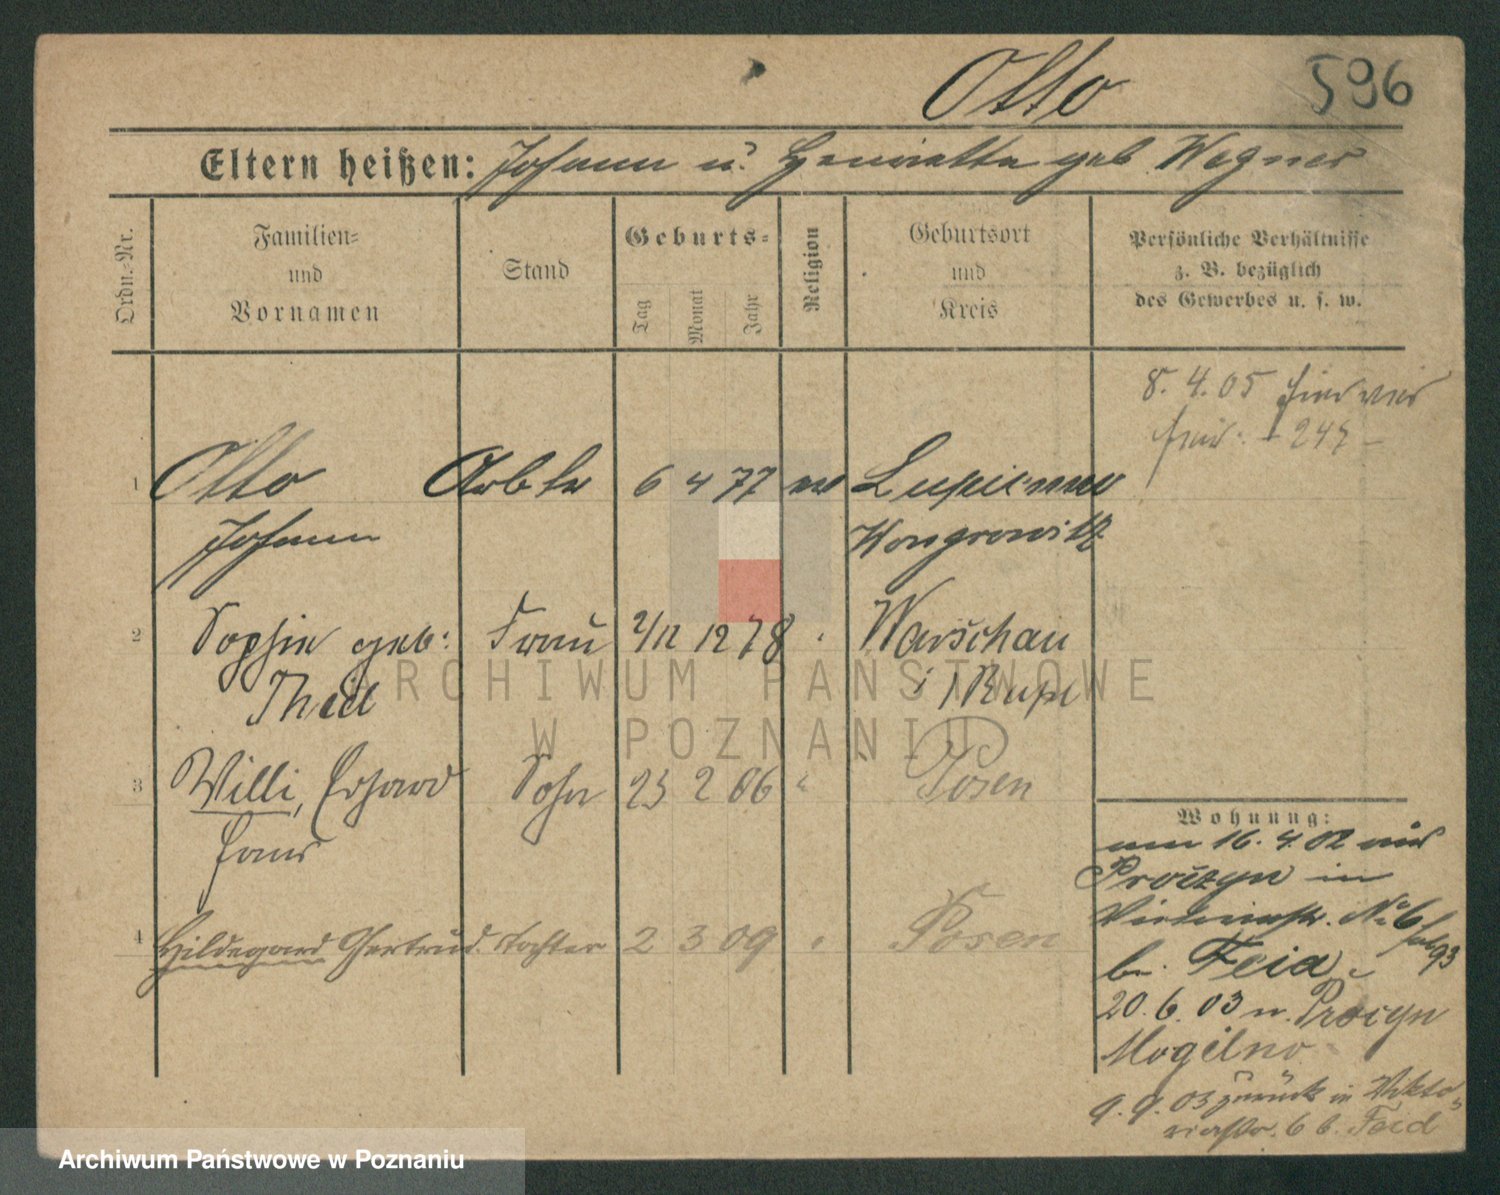 Otto 596
Eltern heißen: Johann u. Henriette geb Wegner
Ordn.-Nr.
Familien-
und
Vornamen
Stand
Geburts-
Tag
Monat
Jahr
Religion
Geburtsort
und
Kreis
Persönliche Verhältnisse
z. B. bezüglich
des Gewerbes u. s. w.
8. 4. 05
1 Otto Arbtr 6 4 77 ev
Johann Wongrowitz
2 Sophie geb: Frau 2/12 12 78 Warschau
Theil i/Rußl
3 Willi, Erhard Sohn 23 2 06 " Posen
Hans
4 Hildegard Gertrud. Tochter 2 3 09 " Posen
Wohnung:
16. 4. 02
in
No 6
b.
20. 6. 03 n.
Mogilno
9. 9. 03 zurück in Vikto-
riastr. 6 b.
ARCHIWUM PAŃSTWOWE
W POZNANIU
Archiwum Państwowe w Poznaniu